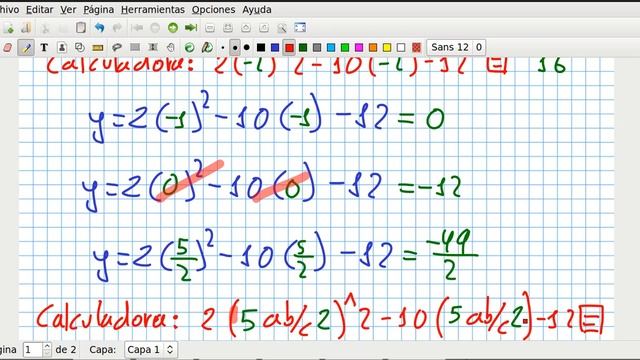 chivo Editar Ver Diario Página Herramientas Opciones Ayuda
Sans 12 0
Calculadora: 2(-2)^2-10(-2)-12 = 16
y=2(-1)²-10(-1)-12=0
y=2(0)²-10(0)-12=-12
y=2(5/2)²-10(5/2)-12=-49/2
Calculadora: 2(5 ab/c 2)^2-10(5 ab/c 2)-12 =
ágina 1 de 2 Capa: Capa 1